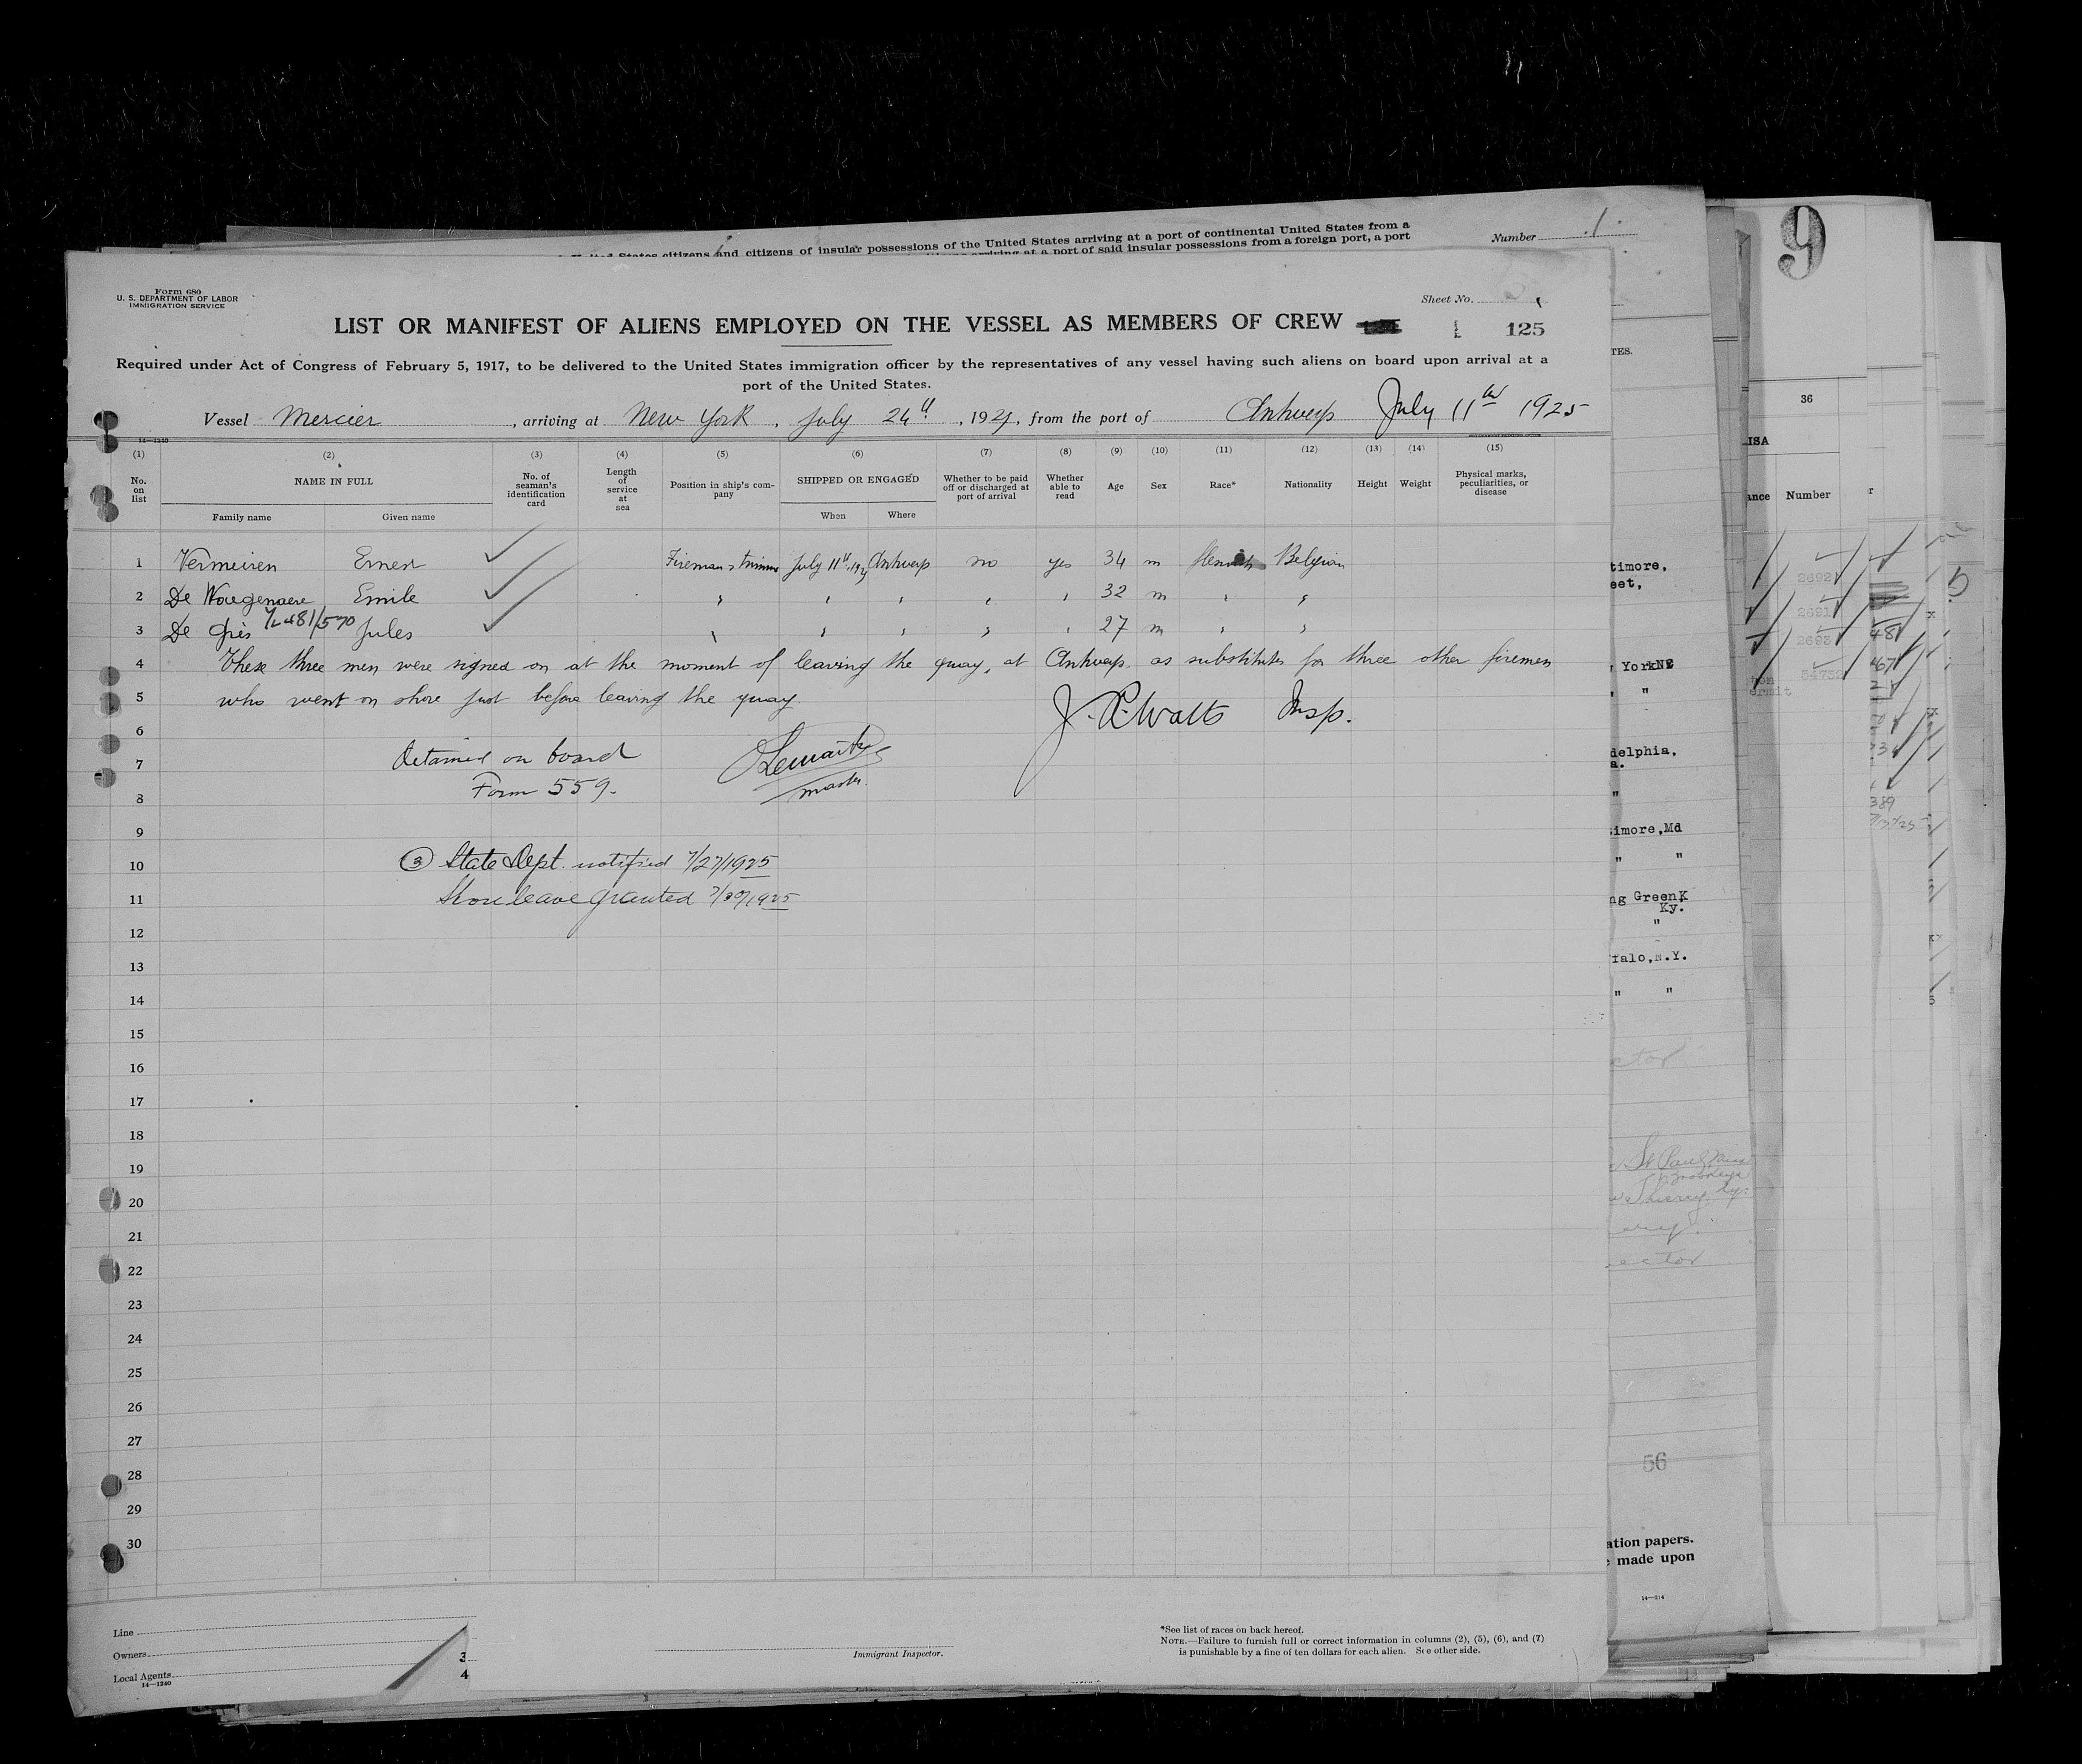 United States citizens and citizens of insular possessions of the United States arriving at a port of continental United States from a
arriving at a port of said insular possessions from a foreign port, a port
Number 1.
9
Form 680
U. S. DEPARTMENT OF LABOR
IMMIGRATION SERVICE
Sheet No.
LIST OR MANIFEST OF ALIENS EMPLOYED ON THE VESSEL AS MEMBERS OF CREW
125
Required under Act of Congress of February 5, 1917, to be delivered to the United States immigration officer by the representatives of any vessel having such aliens on board upon arrival at a
port of the United States.
Vessel Mercier, arriving at New York, July 24th, 192, from the port of Antwerp July 11th 1925
14—1240
(1) (2) (3) (4) (5) (6) (7) (8) (9) (10) (11) (12) (13) (14) (15)
No. on list
NAME IN FULL
Family name Given name
No. of seaman's identification card
Length of service at sea
Position in ship's company
SHIPPED OR ENGAGED
When Where
Whether to be paid off or discharged at port of arrival
Whether able to read
Age
Sex
Race*
Nationality
Height
Weight
Physical marks, peculiarities, or disease
1 Vermeiren Ernest Fireman & trimmer July 11th Antwerp no yes 34 m flemish Belgian
2 De Waegenaere Emile " " " " " 32 m " "
3 De Gres Jules " " " " " 27 m " "
4 These three men were signed on at the moment of leaving the quay, at Antwerp as substitutes for three other firemen
5 who went on shore just before leaving the quay.
J. R. Watts Insp.
6
7 Detained on board
Form 559.
master
8
9
10 (3) State Dept. notified 7/27/1925
11 Shore leave granted 7/30/1925
12
13
14
15
16
17
18
19
20
21
22
23
24
25
26
27
28
29
30
Line
Owners
Local Agents
14—1240
3
4
Immigrant Inspector.
*See list of races on back hereof.
NOTE.—Failure to furnish full or correct information in columns (2), (5), (6), and (7)
is punishable by a fine of ten dollars for each alien. See other side.
TES.
timore,
eet,
York
" "
delphia,
a.
"
imore,Md
" "
ng Green
Ky.
"
falo,N.Y.
" "
ctor
St Paul
ector
56
ation papers.
made upon
14—214
36
ISA
ance Number
2692
2691
2693
389